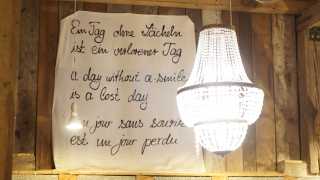 Ein Tag ohne Lächeln
ist ein verlorener Tag
a day without a smile
is a lost day
un jour sans sourire
est un jour perdu